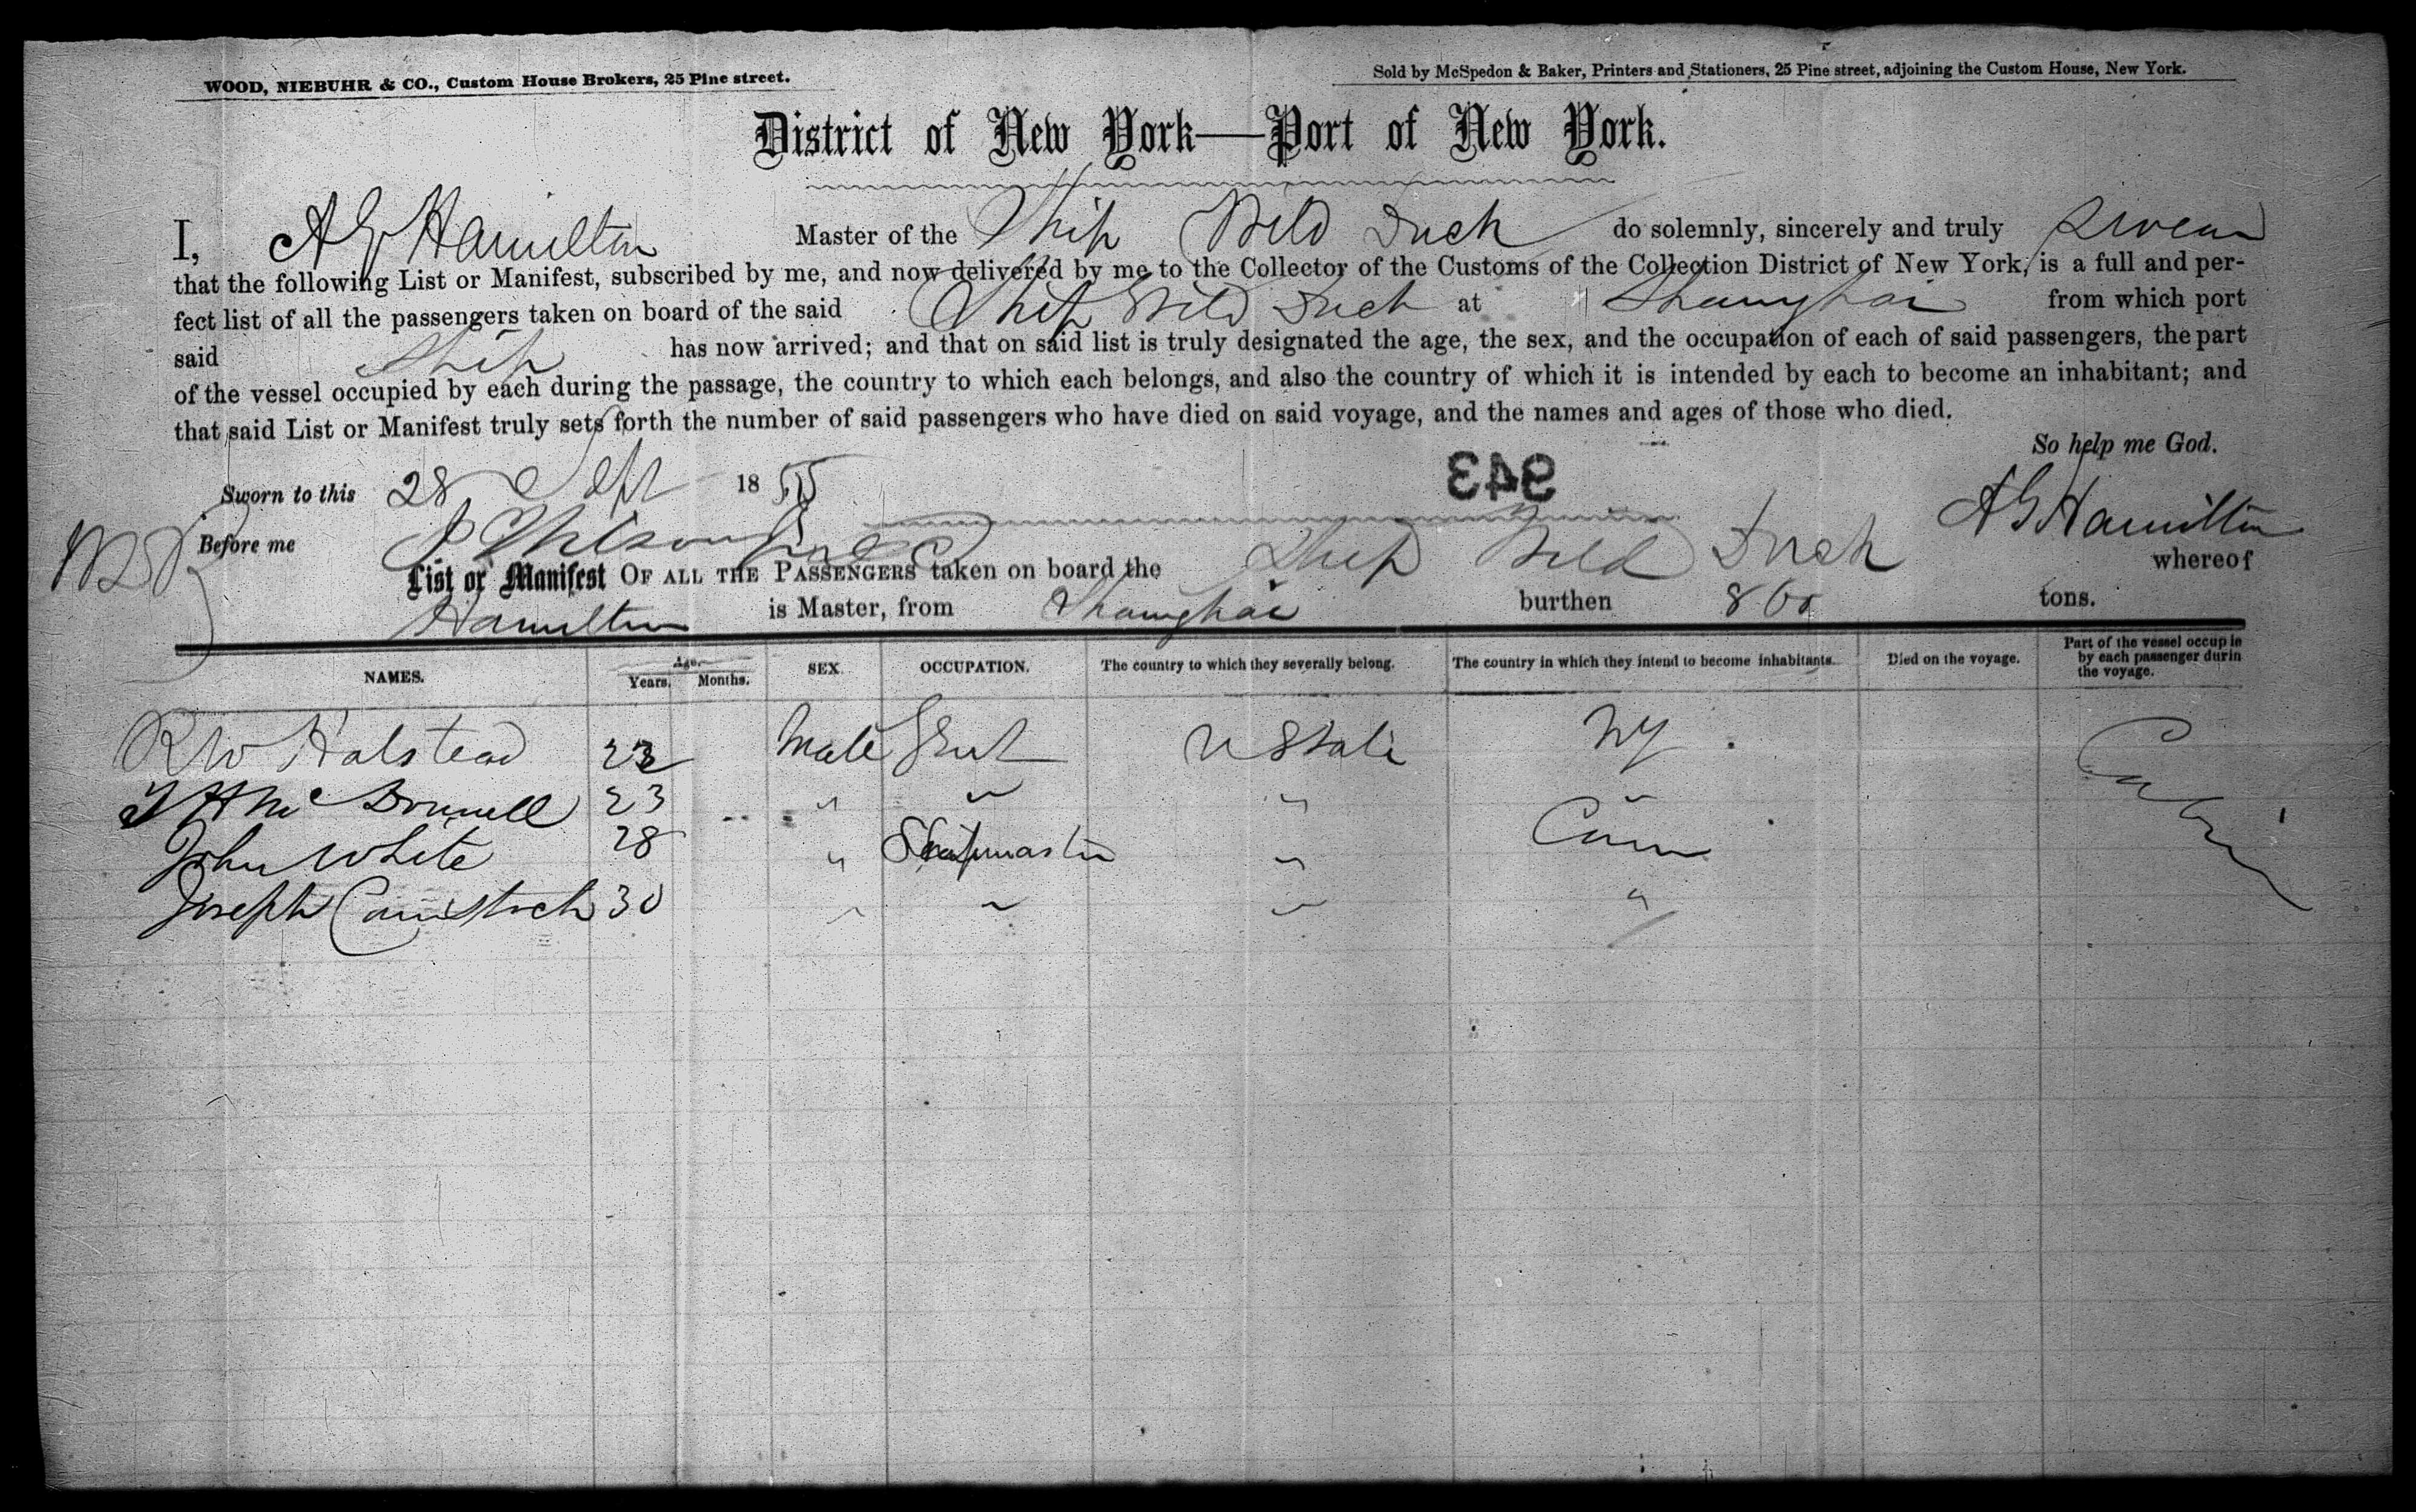 WOOD, NIEBUHR & CO., Custom House Brokers, 25 Pine street.
Sold by McSpedon & Baker, Printers and Stationers, 25 Pine street, adjoining the Custom House, New York.
District of New York—Port of New York.
I, A G Hamilton Master of the Ship Wild Duck do solemnly, sincerely and truly swear
that the following List or Manifest, subscribed by me, and now delivered by me to the Collector of the Customs of the Collection District of New York, is a full and per-
fect list of all the passengers taken on board of the said Ship Wild Duck at Shanghai from which port
said Ship has now arrived; and that on said list is truly designated the age, the sex, and the occupation of each of said passengers, the part
of the vessel occupied by each during the passage, the country to which each belongs, and also the country of which it is intended by each to become an inhabitant; and
that said List or Manifest truly sets forth the number of said passengers who have died on said voyage, and the names and ages of those who died.
So help me God.
Sworn to this 28 Sept 1855
943
A G Hamilton
Before me
List or Manifest OF ALL THE PASSENGERS taken on board the Ship Wild Duck whereof
Hamilton is Master, from Shanghai burthen 860 tons.
NAMES. Age. Years. Months. SEX. OCCUPATION. The country to which they severally belong. The country in which they intend to become inhabitants. Died on the voyage. Part of the vessel occupie by each passenger durin the voyage.
R W Halstead 23 Male Gent U State NY Cabin
J H McDonnell 23 " " " "
John White 28 " Shipmaster " Conn
Joseph Comstock 30 " " " "